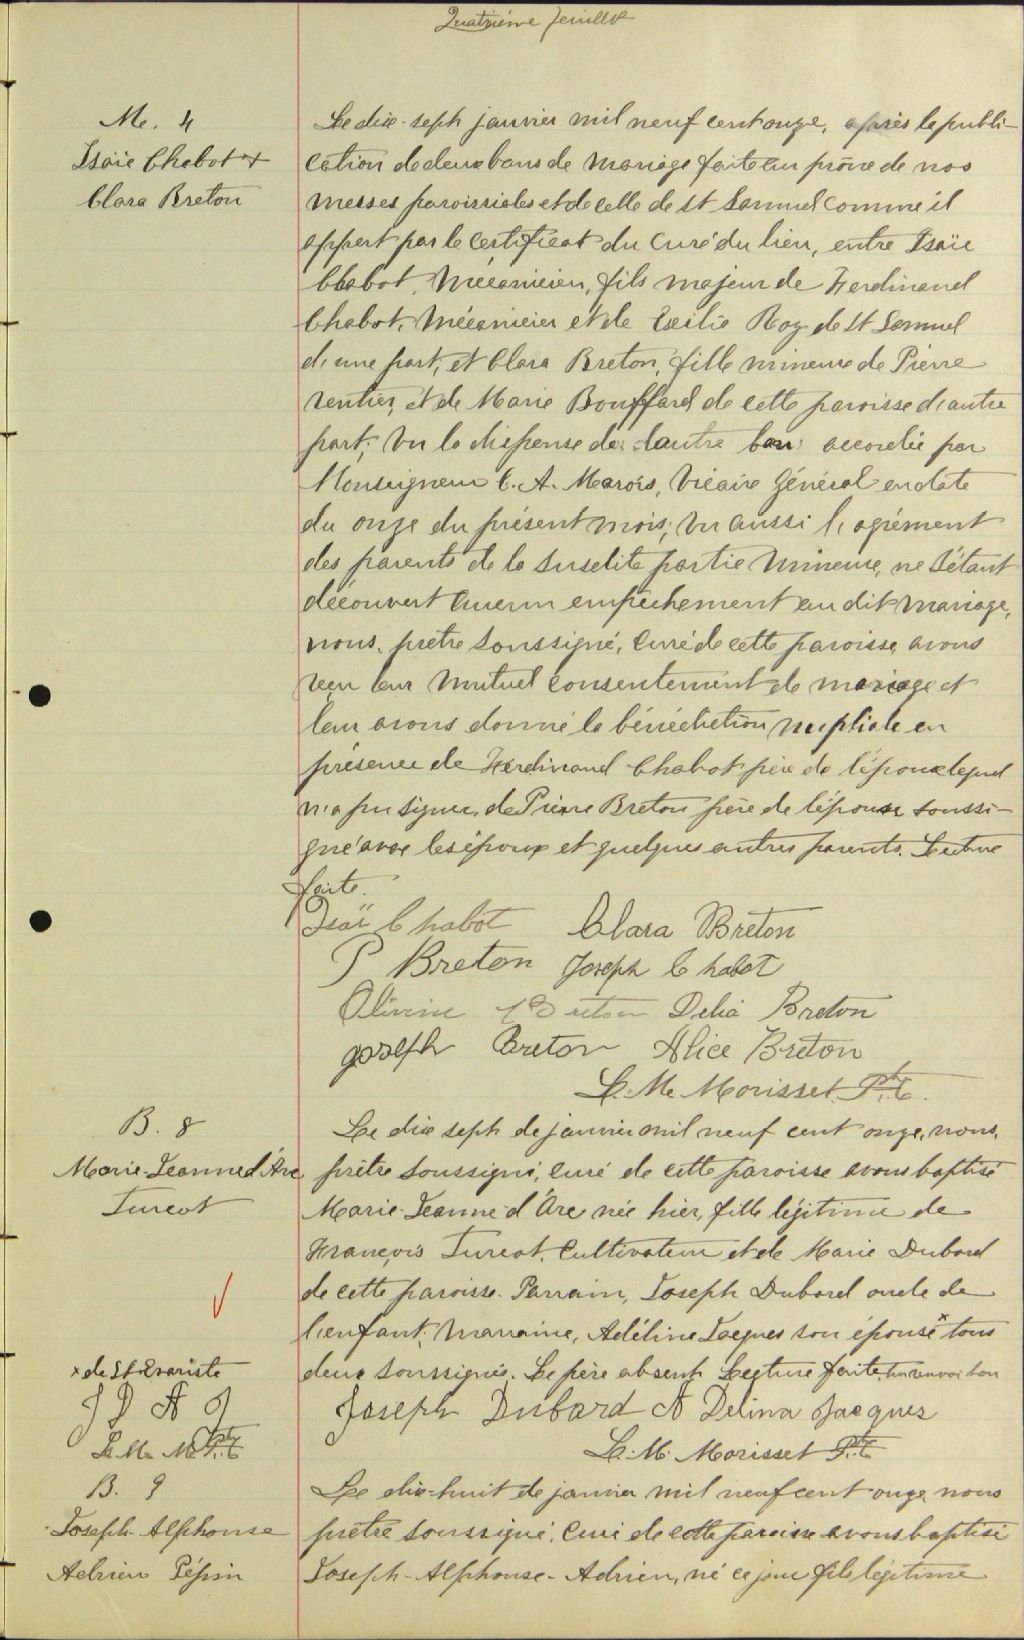 Quatrième feuillet
M. 4
Isaïe Chabot &
Clara Breton
Le dix-sept janvier mil neuf cent onze, après la publi-
cation de deux bans de mariage faite au prône de nos
messes paroissiales et de celle de St Samuel comme il
appert par le certificat du curé du lieu, entre Isaïe
Chabot, mécanicien, fils majeur de Ferdinand
Chabot, mécanicien et de Exilia Roy de St Samuel
d'une part, et Clara Breton, fille mineure de Pierre
rentier, et de Marie Bouffard de cette paroisse d'autre
part; vu la dispense de l'autre ban accordée par
Monseigneur C. A. Marois, Vicaire Général en date
du onze du présent mois; vu aussi l'agrément
des parents de la susdite partie mineure, ne s'étant
découvert aucun empêchement au dit mariage,
nous, prêtre soussigné, curé de cette paroisse avons
reçu leur mutuel consentement de mariage et
leur avons donné la bénédiction nuptiale en
présence de Ferdinand Chabot père de l'époux lequel
n'a pu signer, de Pierre Breton père de l'épouse soussi-
gné avec les époux et quelques autres parents. Lecture
faite.
Isaï Chabot Clara Breton
P Breton Joseph Chabot
Olivine Breton Delia Breton
Joseph Breton Alice Breton
L. M. Morisset Ptre.
B. 8
Marie-Jeanne d'Arc
Turcot
Le dix sept de janvier mil neuf cent onze, nous,
prêtre soussigné, curé de cette paroisse avons baptisé
Marie-Jeanne-d'Arc née hier, fille légitime de
François Turcot, cultivateur et de Marie Dubord
de cette paroisse. Parrain, Joseph Dubord oncle de
l'enfant; marraine, Adéline Jacques son épouse x tous
deux soussignés. Le père absent. Lecture faite. Un renvoi bon
x de St Evariste
J D A J
L. M. M. Ptre
Joseph Dubard A Délina Jacques
L. M. Morisset Ptre
B. 9
Joseph-Alphonse
Adrien Pépin
Le dix-huit de janvier mil neuf cent onze nous
prêtre soussigné, curé de cette paroisse avons baptisé
Joseph-Alphonse-Adrien, né ce jour fils légitime